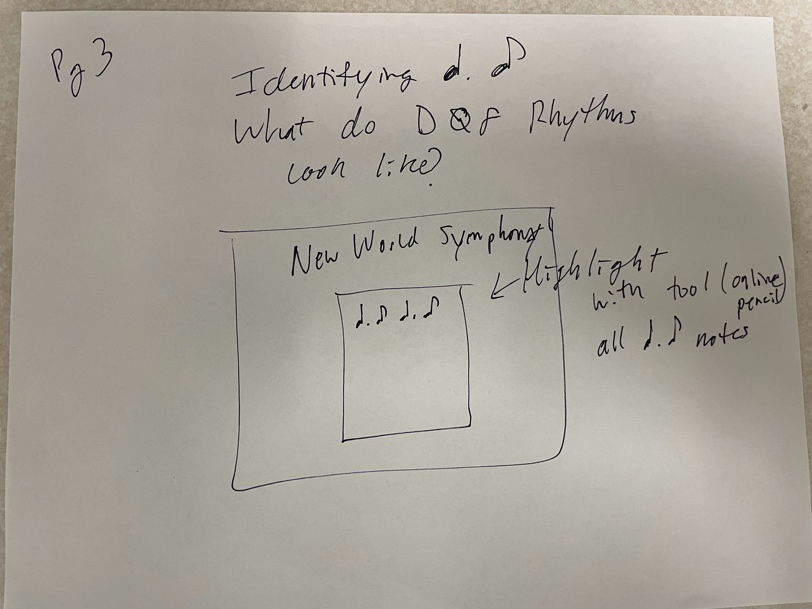 Pg 3
Identifying ♩. ♪
What do DQ8 Rhythms
look like?
New World Symphony
♩. ♪ ♩. ♪
Highlight
with tool (online pencil)
all ♩. ♪ notes